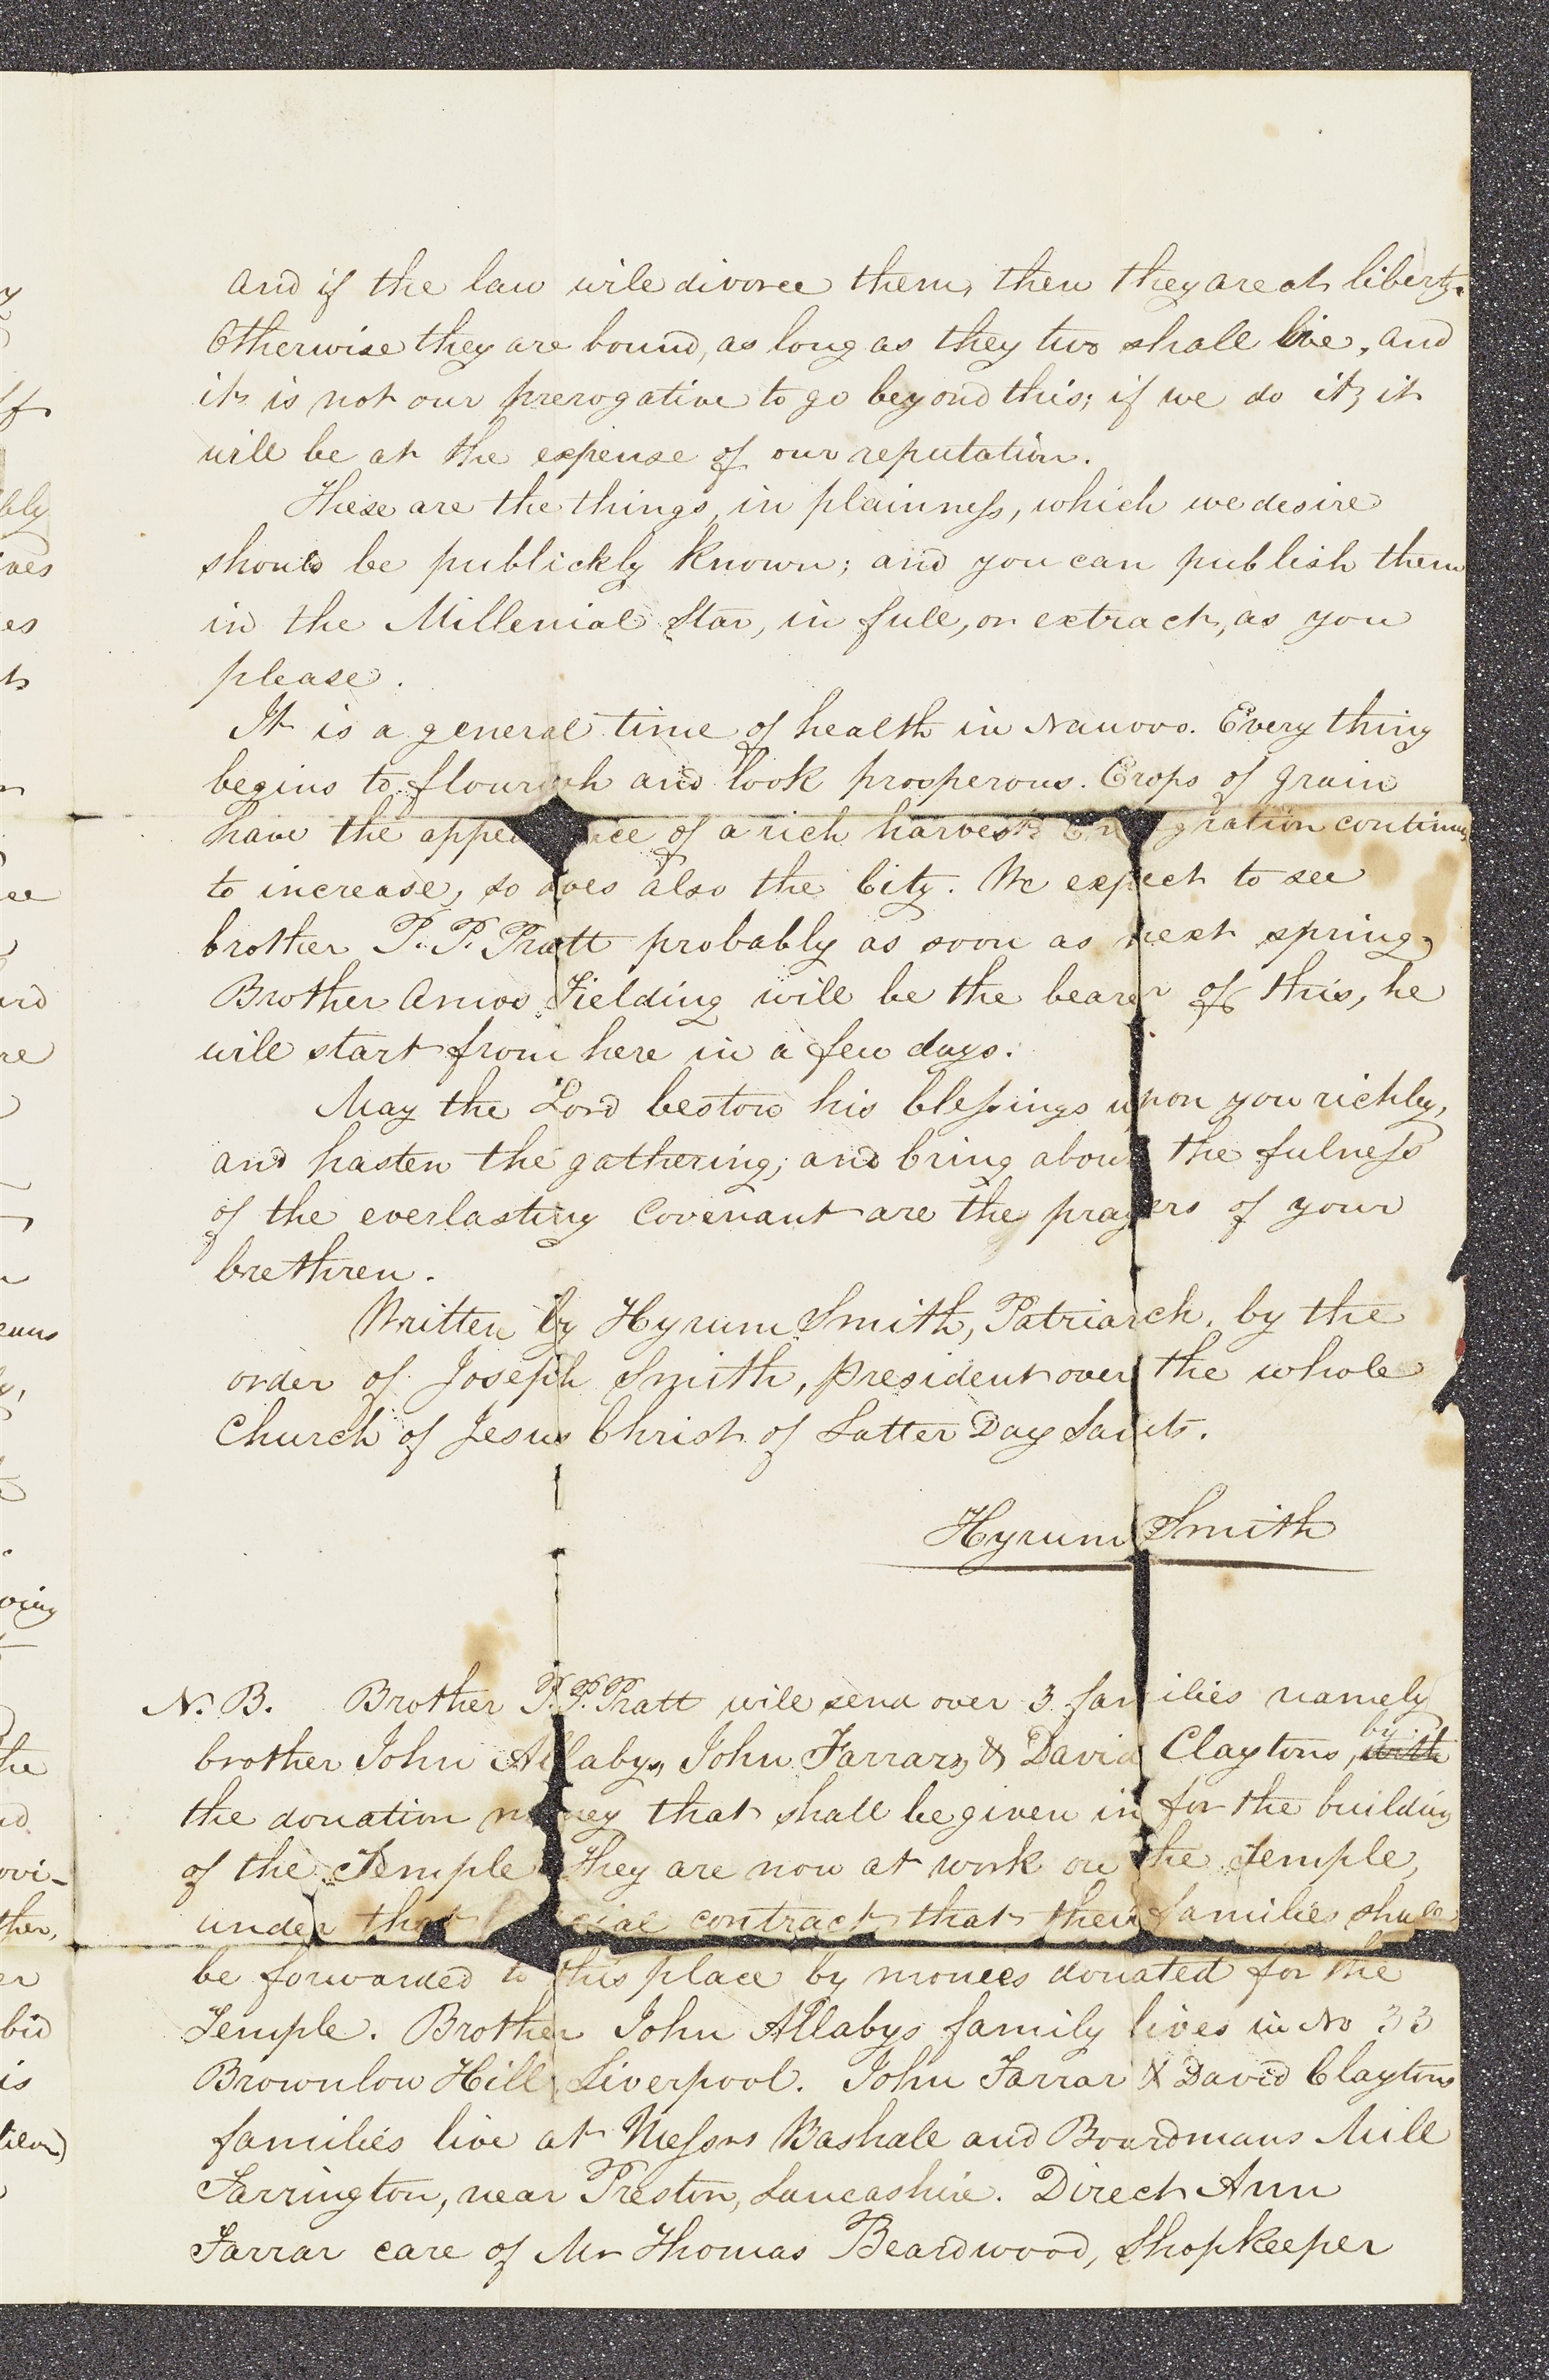 and if the law will divorce them, then they are at liberty.
Otherwise they are bound, as long as they two shall live, and
it is not our prerogative to go beyond this; if we do it, it
will be at the expense of our reputation.
These are the things, in plainness, which we desire
should be publickly known; and you can publish them
in the Millenial Star, in full, or extract, as you
please.
It is a general time of health in Nauvoo. Every thing
begins to flourish and look prosperous. Crops of grain
have the appearance of a rich harvest. Emigration continues
to increase, so does also the City. We expect to see
brother P. P. Pratt probably as soon as next spring,
Brother Amos Fielding will be the bearer of this, he
will start from here in a few days.
May the Lord bestow his blessings upon you richly,
and hasten the gathering; and bring about the fulness
of the everlasting Covenant are the prayers of your
brethren.
Written by Hyrum Smith, Patriarch, by the
order of Joseph Smith, president over the whole
Church of Jesus Christ of Latter Day Saints.
Hyrum Smith
N. B. Brother P. P. Pratt will send over 3 families namely
brother John Allabys, John Farrars, & David Claytons, by with
the donation money that shall be given in for the building
of the Temple they are now at work on the Temple,
under that special contract that their families shall
be forwarded to this place by monies donated for the
Temple. Brother John Allabys family lives in No 33
Brownlow Hill Liverpool. John Farrar & David Claytons
families live at Messrs Bashall and Boardmans Mill
Farrington, near Preston, Lancashire. Direct Ann
Farrar care of Mr Thomas Beardwood, Shopkeeper